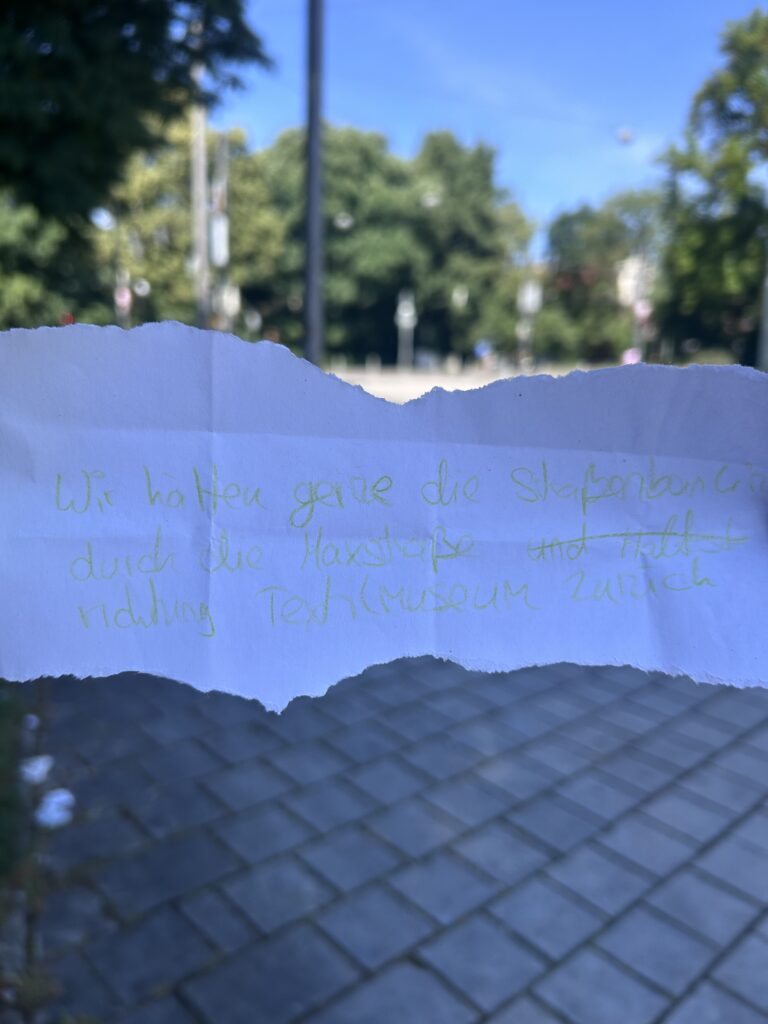 Wir hätten gerne die Straßenbahnlinie
durch die Maxstraße und Haltst
richtung Textilmuseum zurück